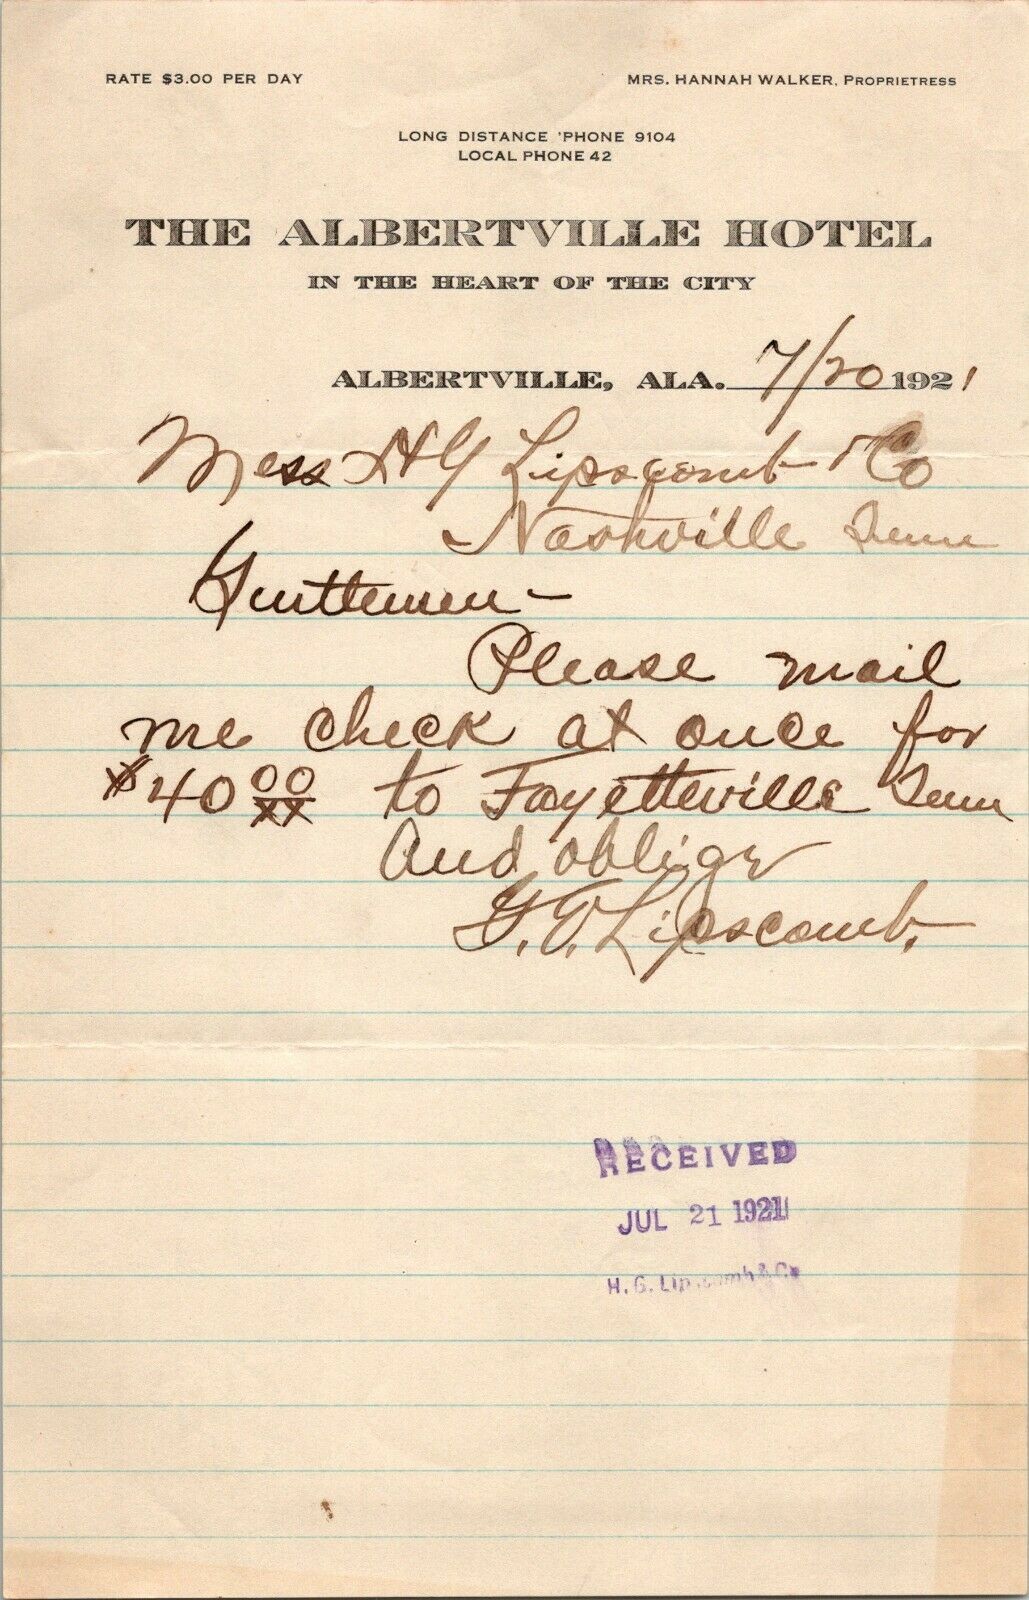 RATE $3.00 PER DAY
MRS. HANNAH WALKER, PROPRIETRESS
LONG DISTANCE 'PHONE 9104
LOCAL PHONE 42
THE ALBERTVILLE HOTEL
IN THE HEART OF THE CITY
ALBERTVILLE, ALA. 7/20 1921
Mess H G Lipscomb & Co
Nashville Tenn
Gentlemen —
Please mail
me check at once for
$40 00/xx to Fayetteville Tenn
And oblige
Lipscomb.
RECEIVED
JUL 21 1921
H. G. Lipscomb & Co